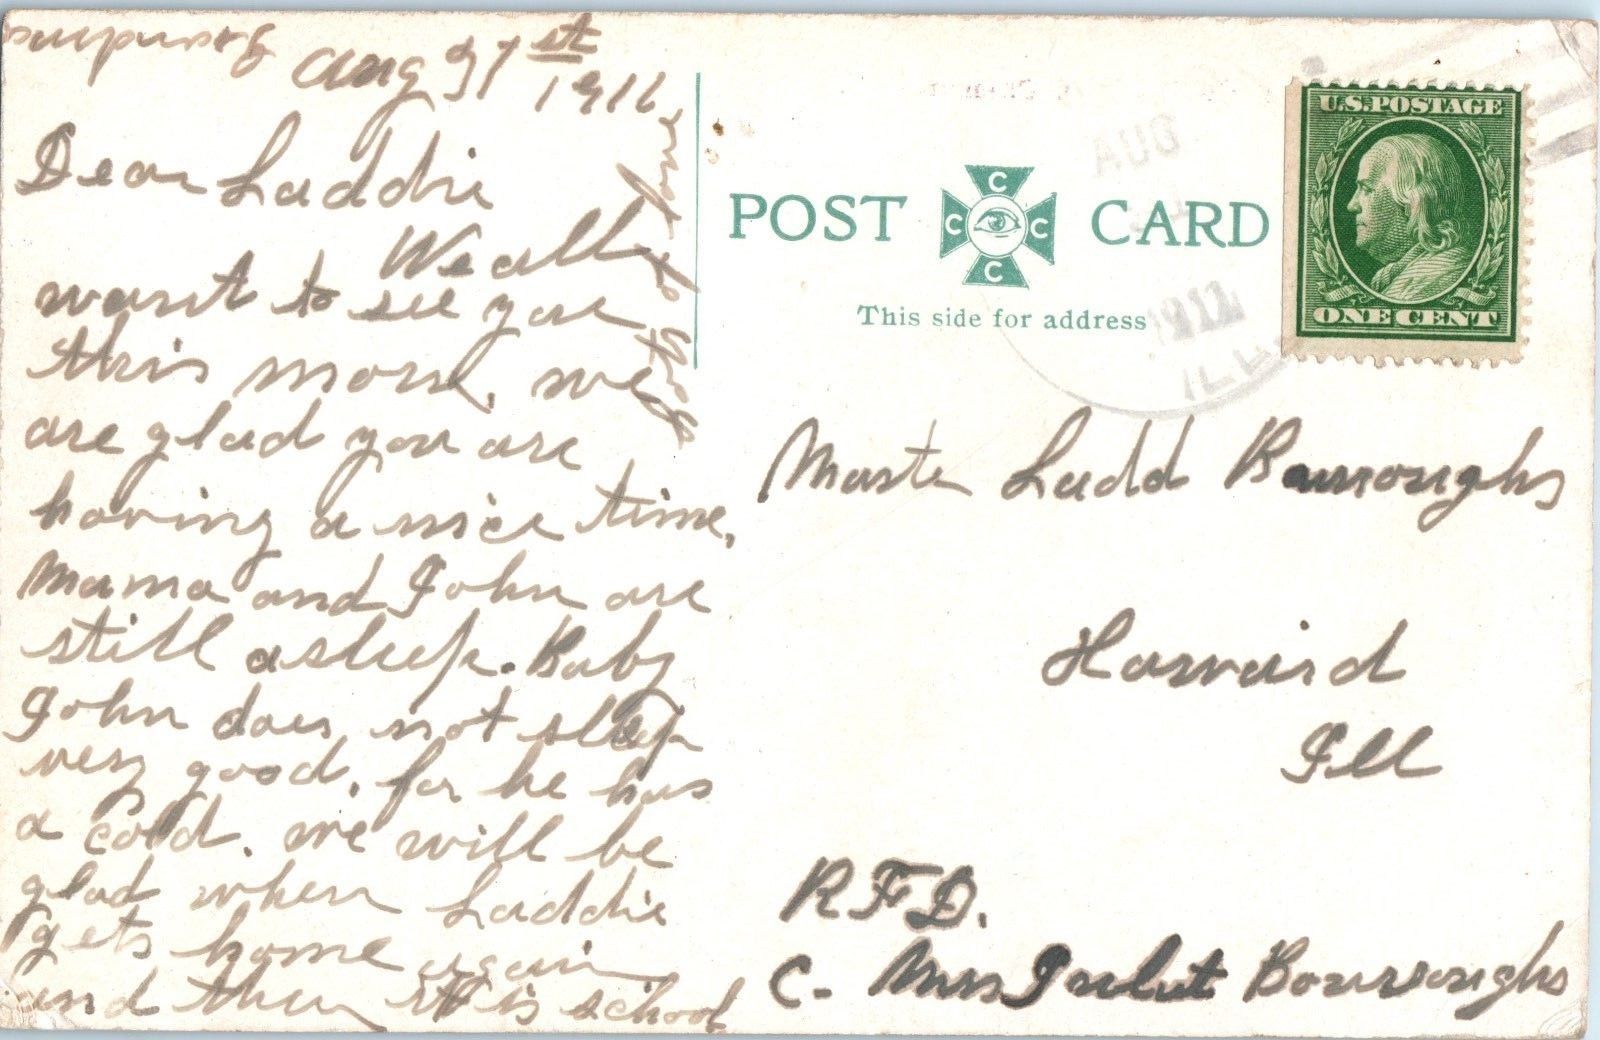 Aug 31st
1911
Dear Laddie
We all
want to see you
this morn, we
are glad you are
having a nice time,
Mama and John are
still asleep. Baby
John does not sleep
very good, for he has
a cold. we will be
glad when Laddie
gets home again
and then it is school
love to
Grandma
POST CARD
C C C C
This side for address
AUG
1911
ILL
U.S. POSTAGE
ONE CENT
Maste Ladd Burroughs
Harvard
Ill
R.F.D.
C- Mrs Burroughs